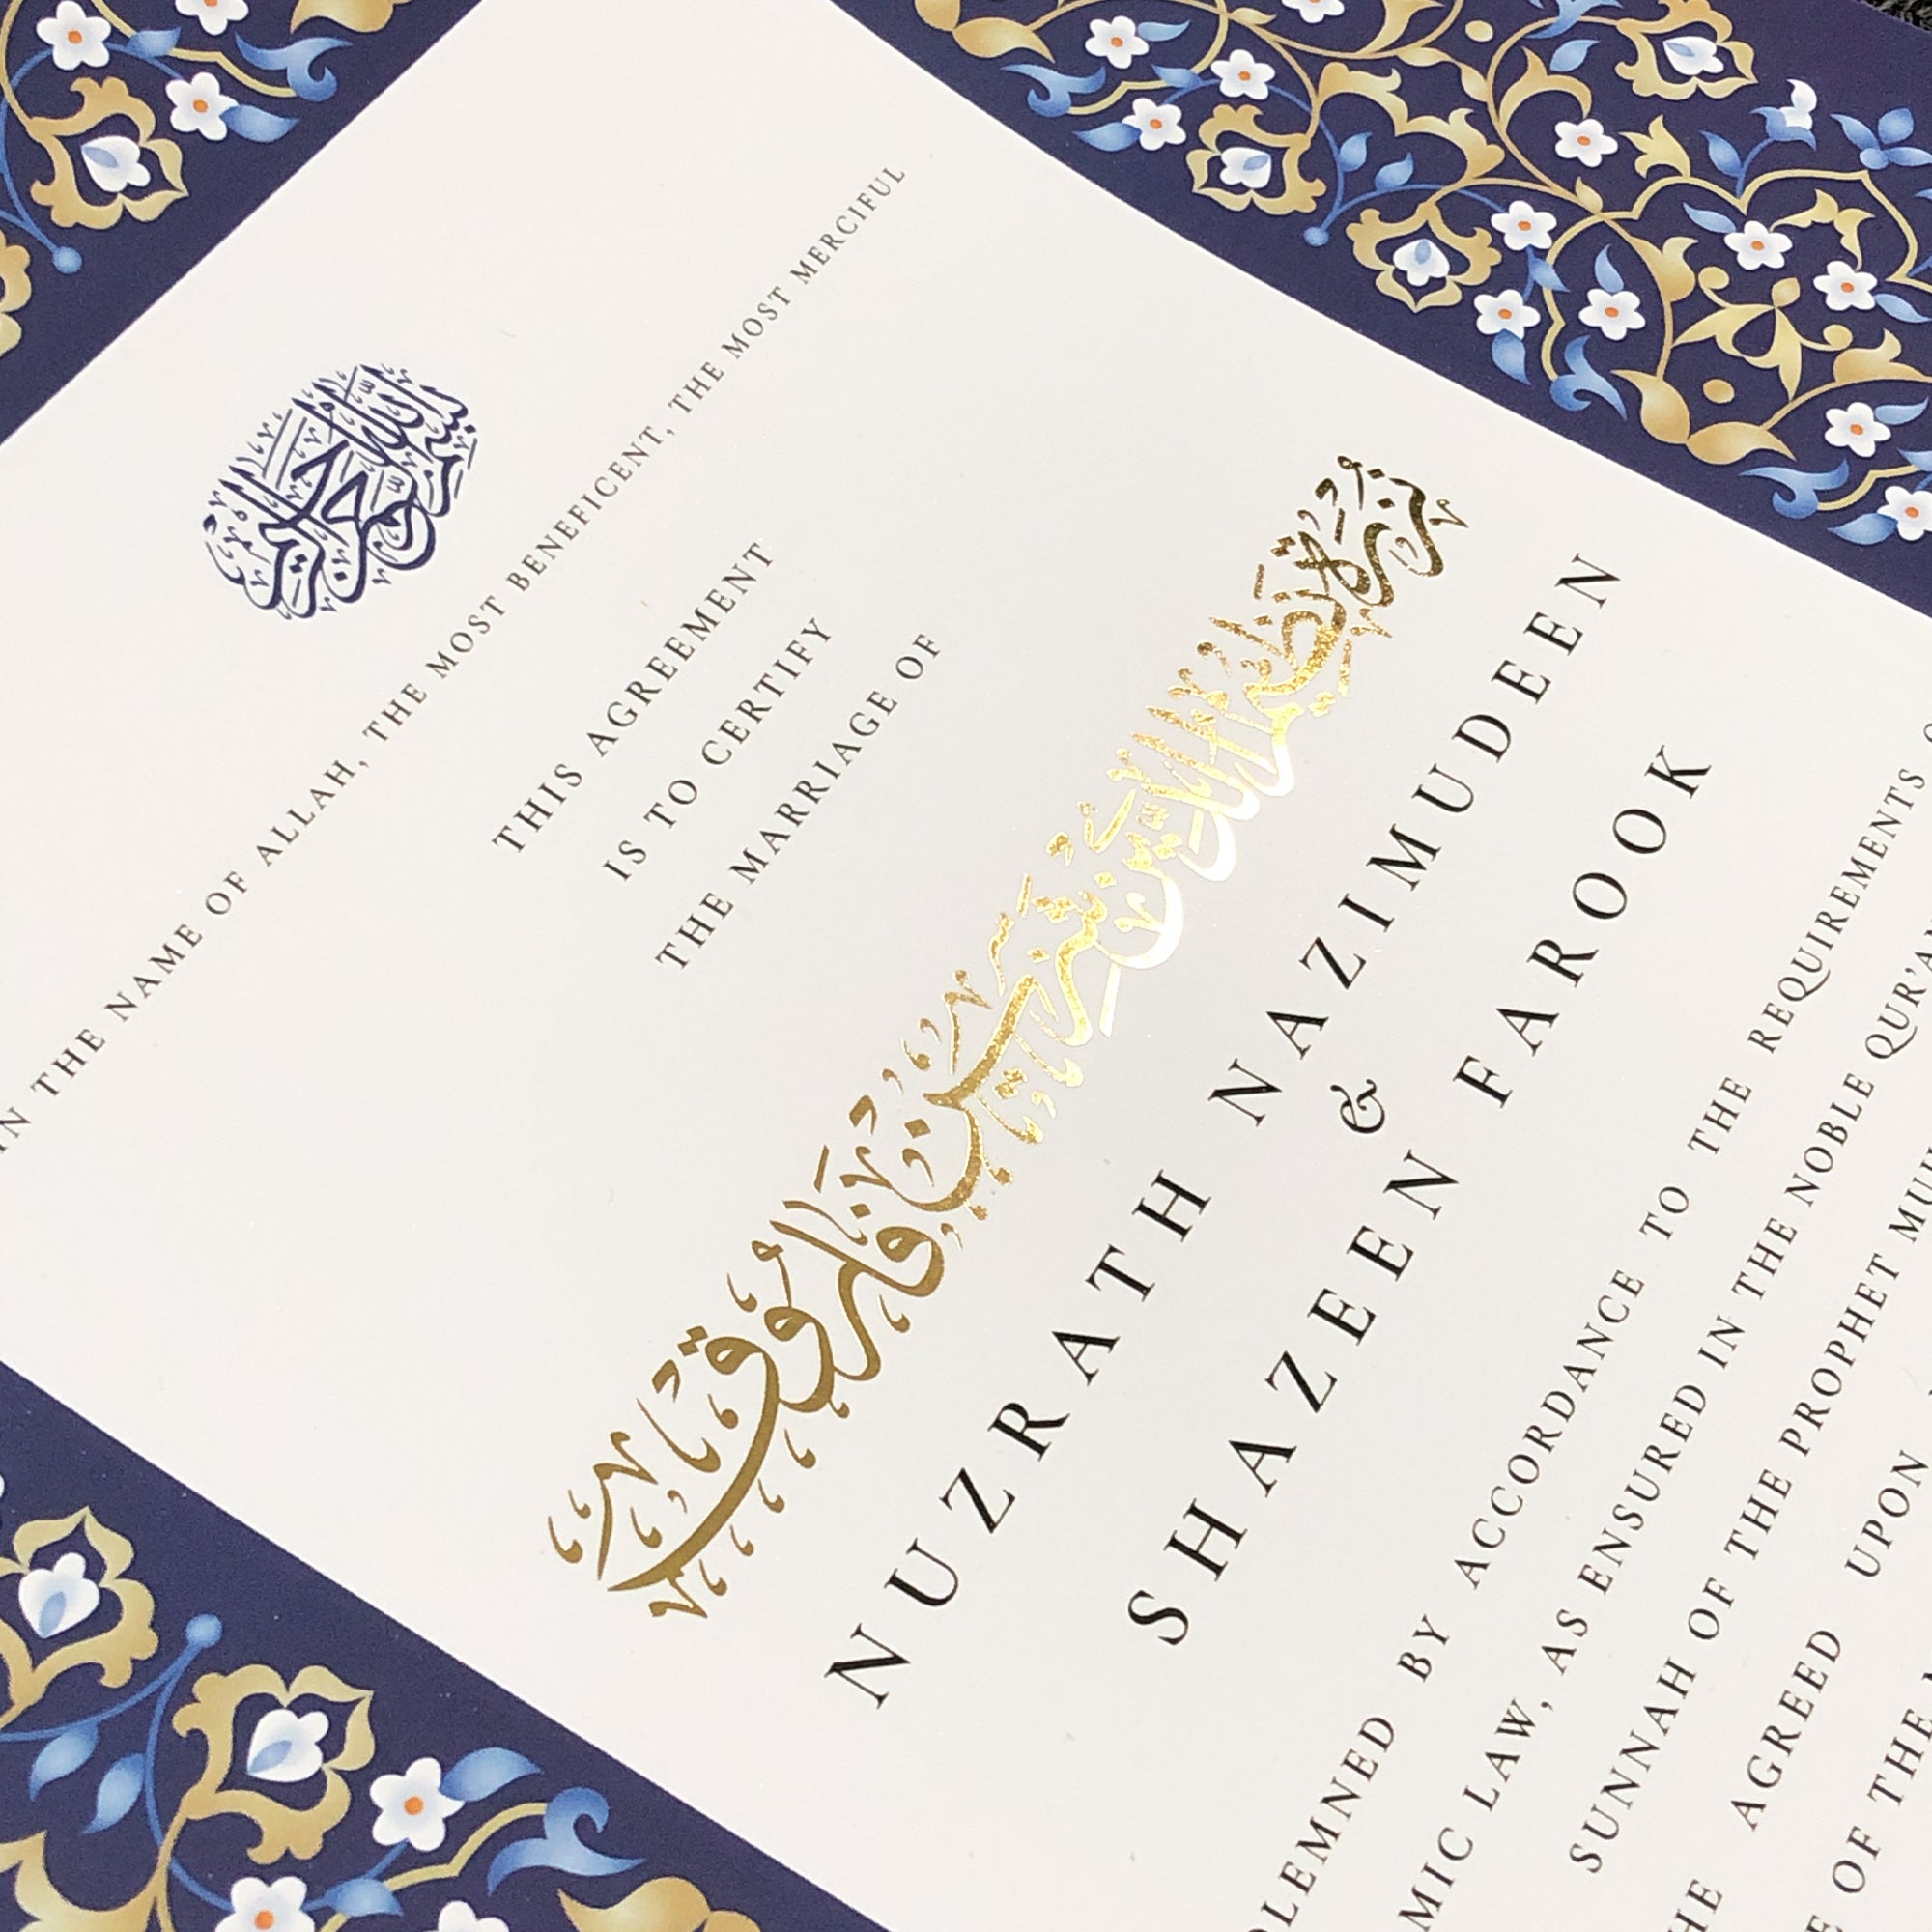 بسم الله الرحمن الرحيم
IN THE NAME OF ALLAH, THE MOST BENEFICENT, THE MOST MERCIFUL
THIS AGREEMENT
IS TO CERTIFY
THE MARRIAGE OF
NUZRATH NAZIMUDEEN
&
SHAZEEN FAROOK
BY ACCORDANCE TO THE REQUIREMENTS
LAW, AS ENSURED IN THE NOBLE QUR'AN
SUNNAH OF THE PROPHET
AGREED UPON
OF THE